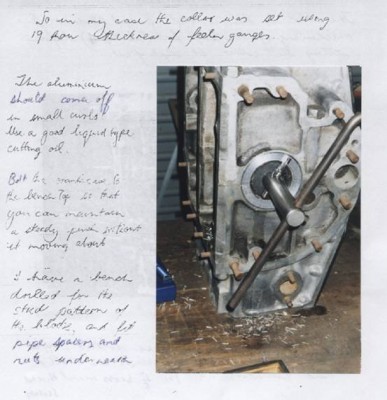 So in my case the collar was set using
19 thickness of feeler gauges.
The aluminium
should come off
in small curls
Use a good liquid type
cutting oil.
Bolt the crankcase to
the bench Top so that
you can maintain
a steady without
it moving about
I have a bench
drilled for the
stud pattern of
the block, and put
pipe spacers and
nuts underneath